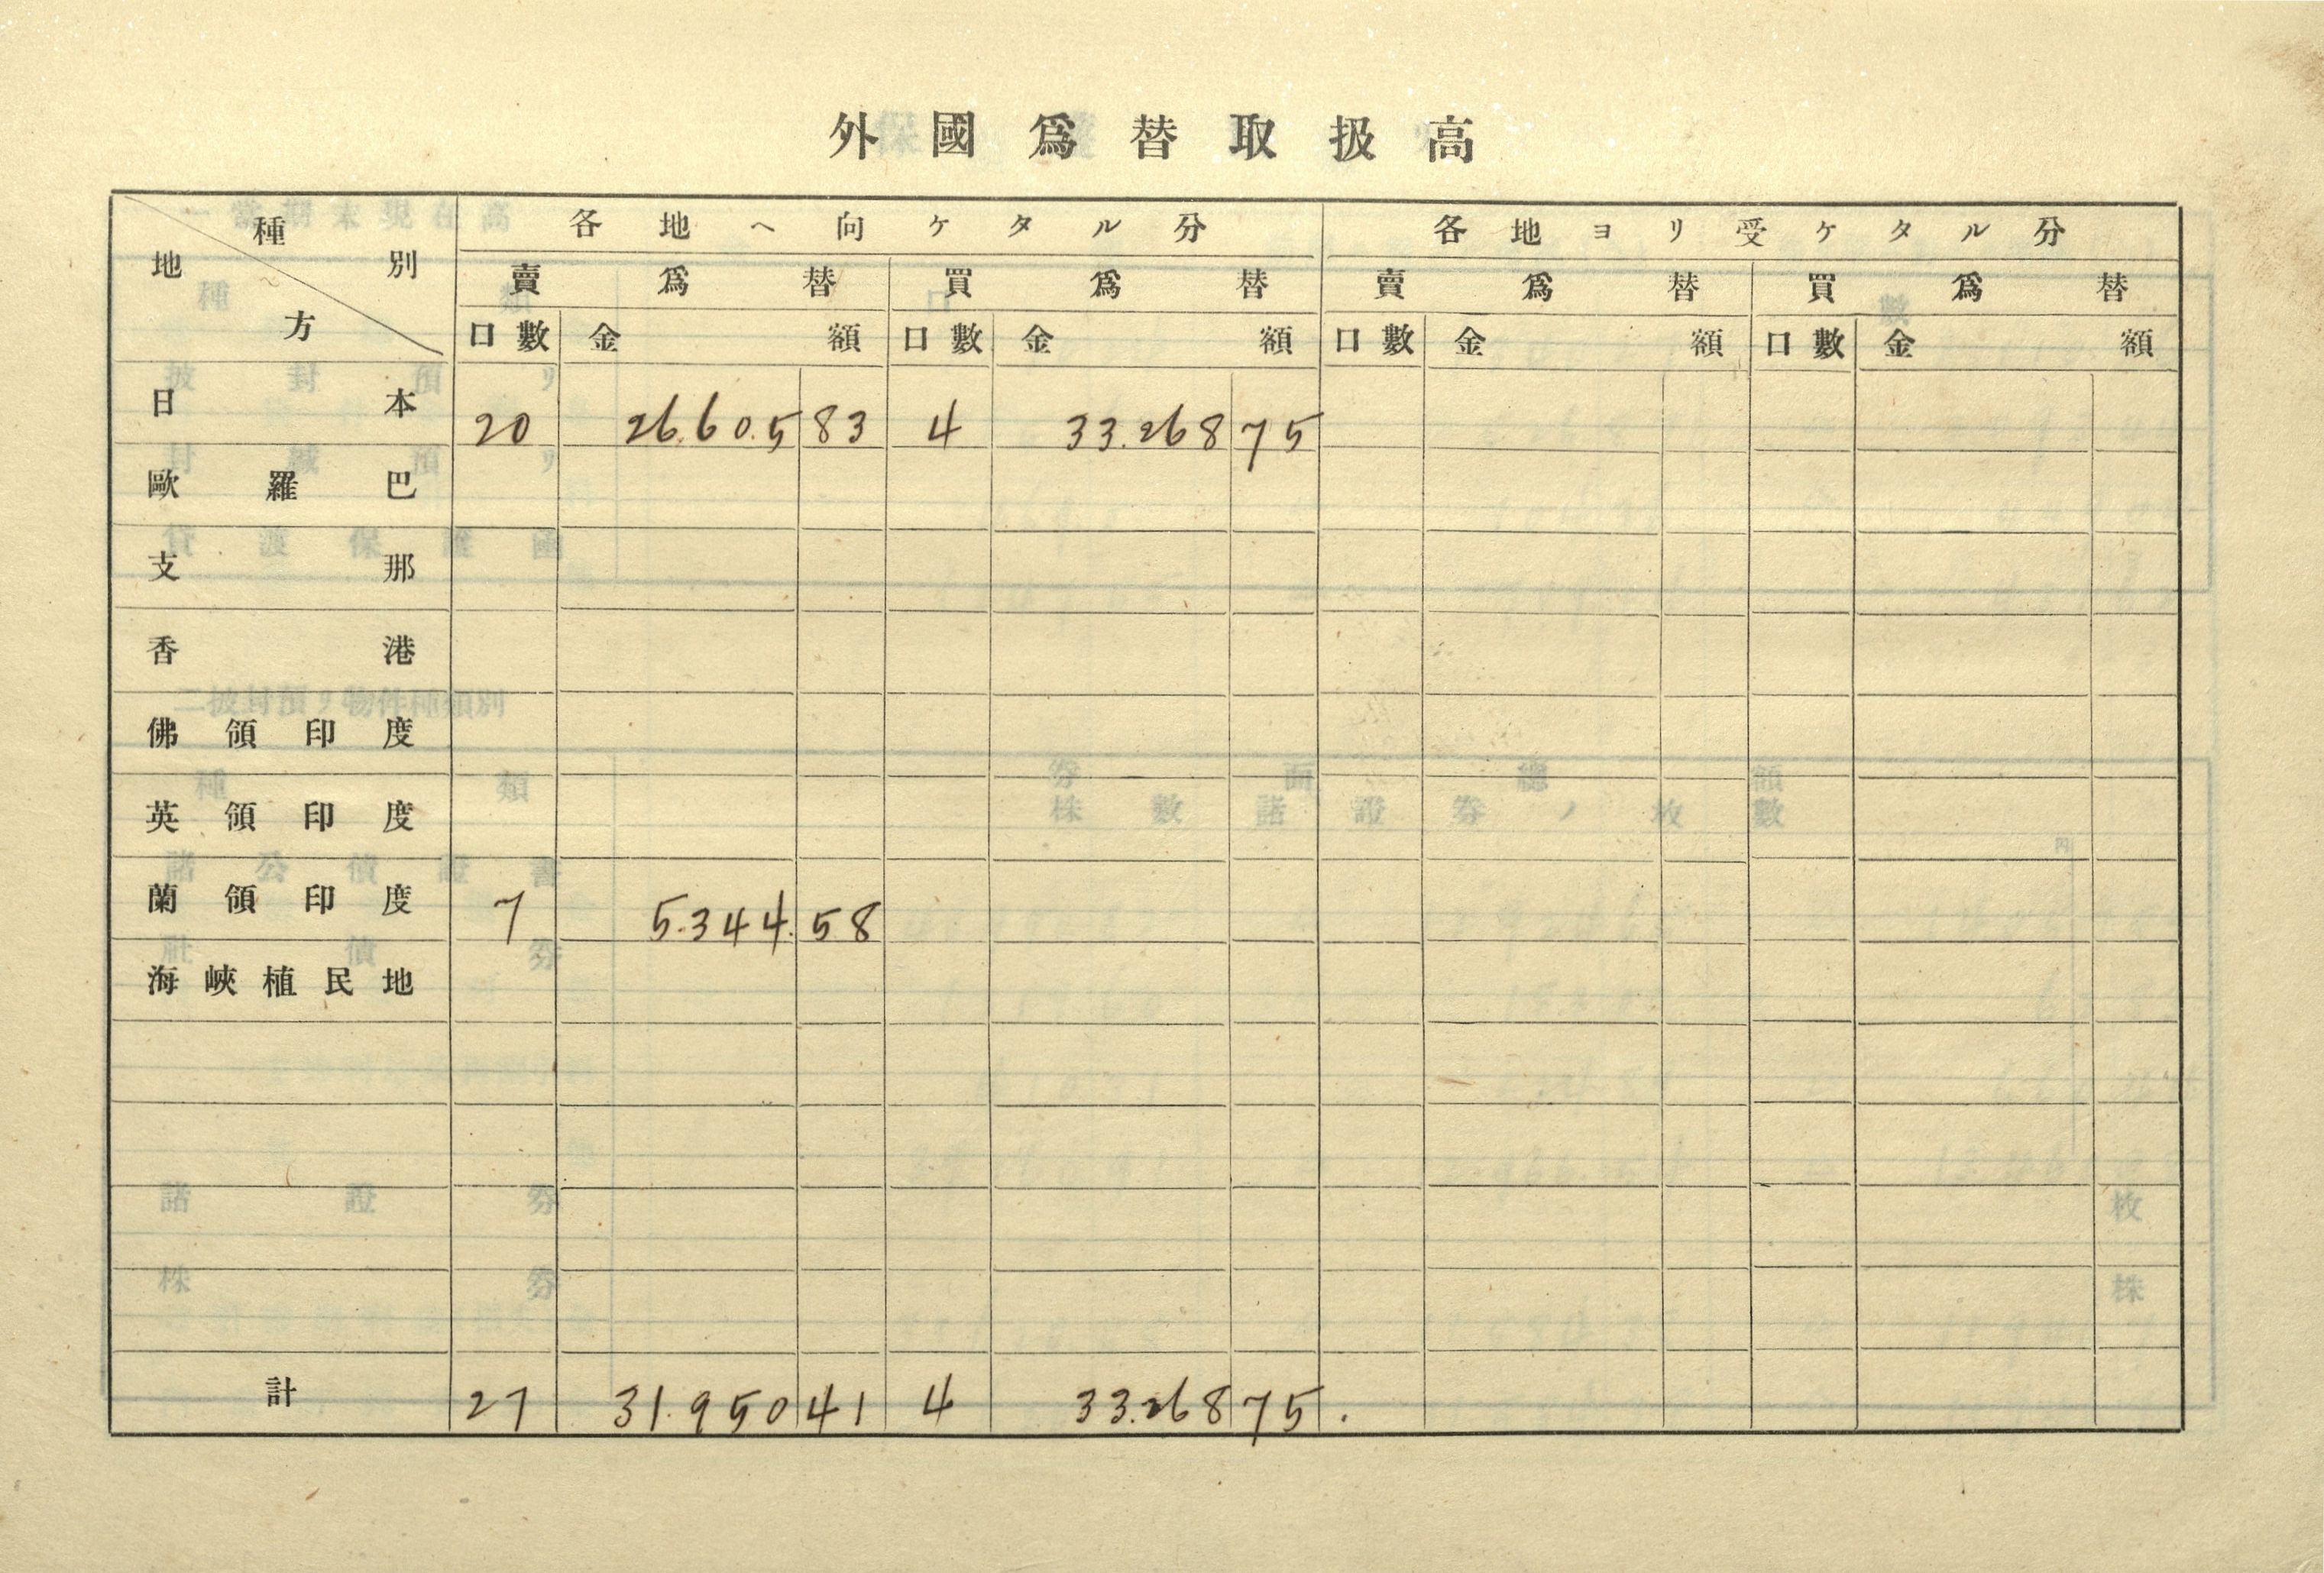 外國爲替取扱高
種別 地方 各地ヘ向ケタル分 各地ヨリ受ケタル分
賣爲替 買爲替 賣爲替 買爲替
口數 金額 口數 金額 口數 金額 口數 金額
日本 20 26.60.5 83 4 33.268 75
歐羅巴
支那
香港
佛領印度
英領印度
蘭領印度 7 5.344. 58
海峽植民地
計 27 31.950 41 4 33.268 75.